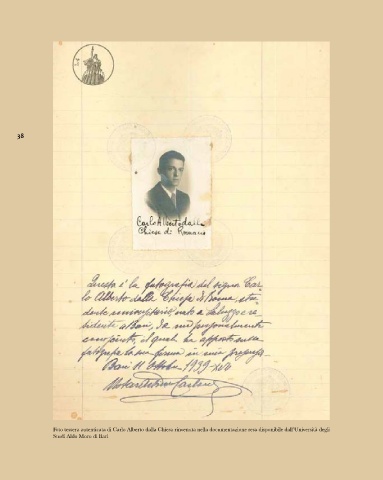 38
L.4
Carlo Alberto dalla
Chiesa di Romano
Questa è la fotografia del signor Car-
lo Alberto dalla Chiesa di Roma, stu-
dente universitario, nato a Saluzzo e re-
sidente a Bari, da me personalmente
conosciuto, il quale ha apposto sulla
fotografia la sua firma in mia presenza.
Bari 11 Ottobre 1939-XVII
Foto tessera autenticata di Carlo Alberto dalla Chiesa rinvenuta nella documentazione resa disponibile dall'Università degli
Studi Aldo Moro di Bari